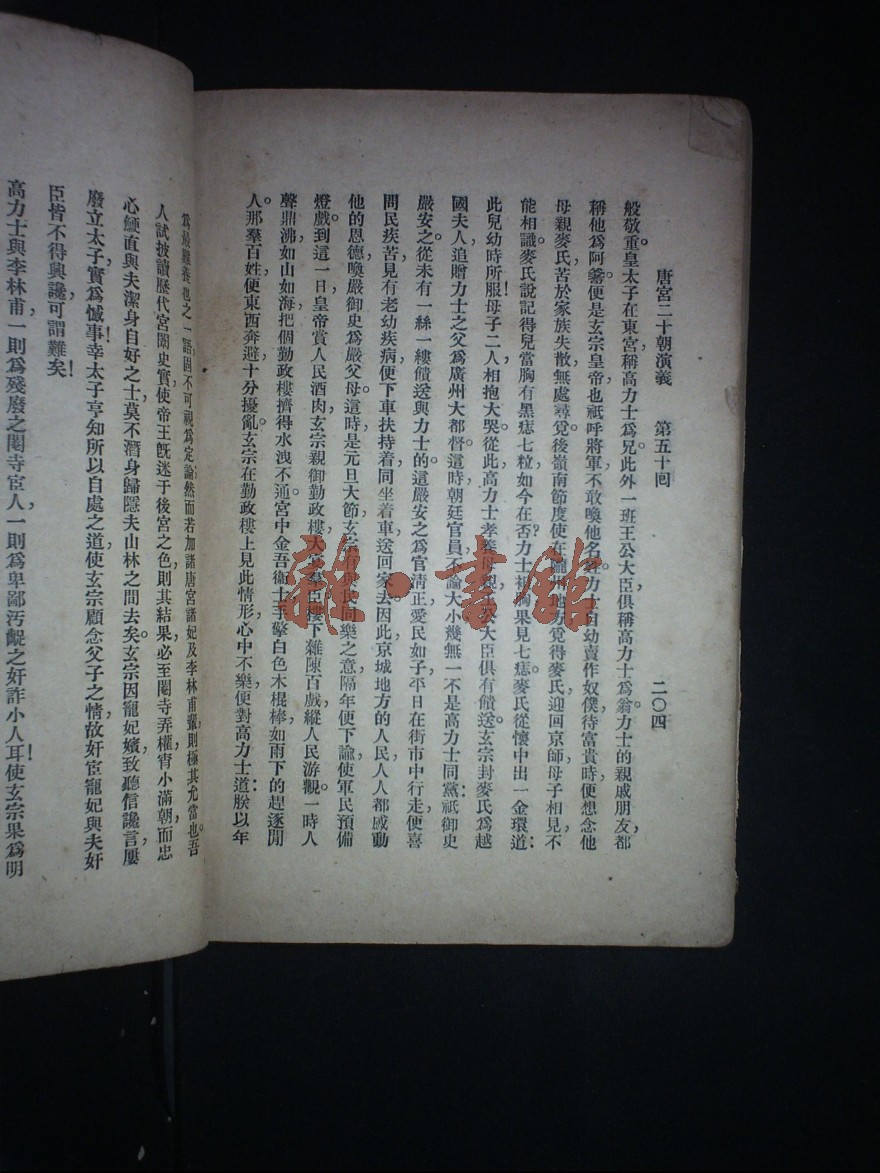 唐宮二十朝演義　第五十回　二〇四
般敬重。皇太子在東宮、稱高力士為兄、此外一班王公大臣、俱稱高力士為翁。力士的親戚朋友、都
稱他為阿爺、便是玄宗皇帝、也祇呼將軍、不敢喚他名
力士自幼賣作奴僕、待富貴時、便想念他
母親麥氏、苦於家族失散、無處尋覓、後嶺南節度使在瀧州地方、覓得麥氏、迎回京師、母子相見、不
能相識、麥氏說、記得兒當胸有黑痣七粒、如今在否?力士袒胸、果見七痣。麥氏從懷中出一金環道:
此兒幼時所服!母子二人、相抱大哭。從此高力士孝養母親、
大臣俱有饋送。玄宗封麥氏為越
國夫人、追贈力士之父為廣州大都督。這時朝廷官員、不論大小、幾無一不是高力士同黨;祇御史
嚴安之、從未有一絲一縷饋送與力士的。這嚴安之為官清正、愛民如子、平日在街市中行走、便喜
問民疾苦、見有老幼疾病、便下車扶持着、同坐着車、送回家去。因此京城地方的人民、人人都感動
他的恩德、喚嚴御史為嚴父母。這時是元旦大節、玄宗
與民同樂之意、隔年便下諭、使軍民預備
燈戲。到這一日、皇帝賞人民酒肉、玄宗親御勤政樓、大宴羣臣、樓下雜陳百戲、縱人民游觀。一時人
聲鼎沸、如山如海、把個勤政樓、擠得水洩不通。宮中金吾衞士、手擎白色木棍、棒如雨下的趕逐閒
人。那羣百姓、便東西奔避、十分擾亂。玄宗在勤政樓上見此情形、心中不樂、便對高力士道:朕以年
為最難養也之一語、固不可視為定論、然而若加諸唐宮諸妃及李林甫輩、則極其允當也。吾
人試披讀歷代宮闈史實、使帝王旣迷于後宮之色、則其結果、必至閹寺弄權、宵小滿朝、而忠
心鯁直與夫潔身自好之士、莫不潛身歸隱夫山林之間去矣。玄宗因寵妃嬪、致聽信讒言、屢
廢立太子、實為憾事!幸太子亨知所以自處之道、使玄宗顧念父子之情、故奸宦寵妃與夫奸
臣、皆不得興讒、可謂難矣!
高力士與李林甫、一則為殘廢之閹寺宦人、一則為卑鄙汚齪之奸詐小人耳!使玄宗果為明
雜·書館